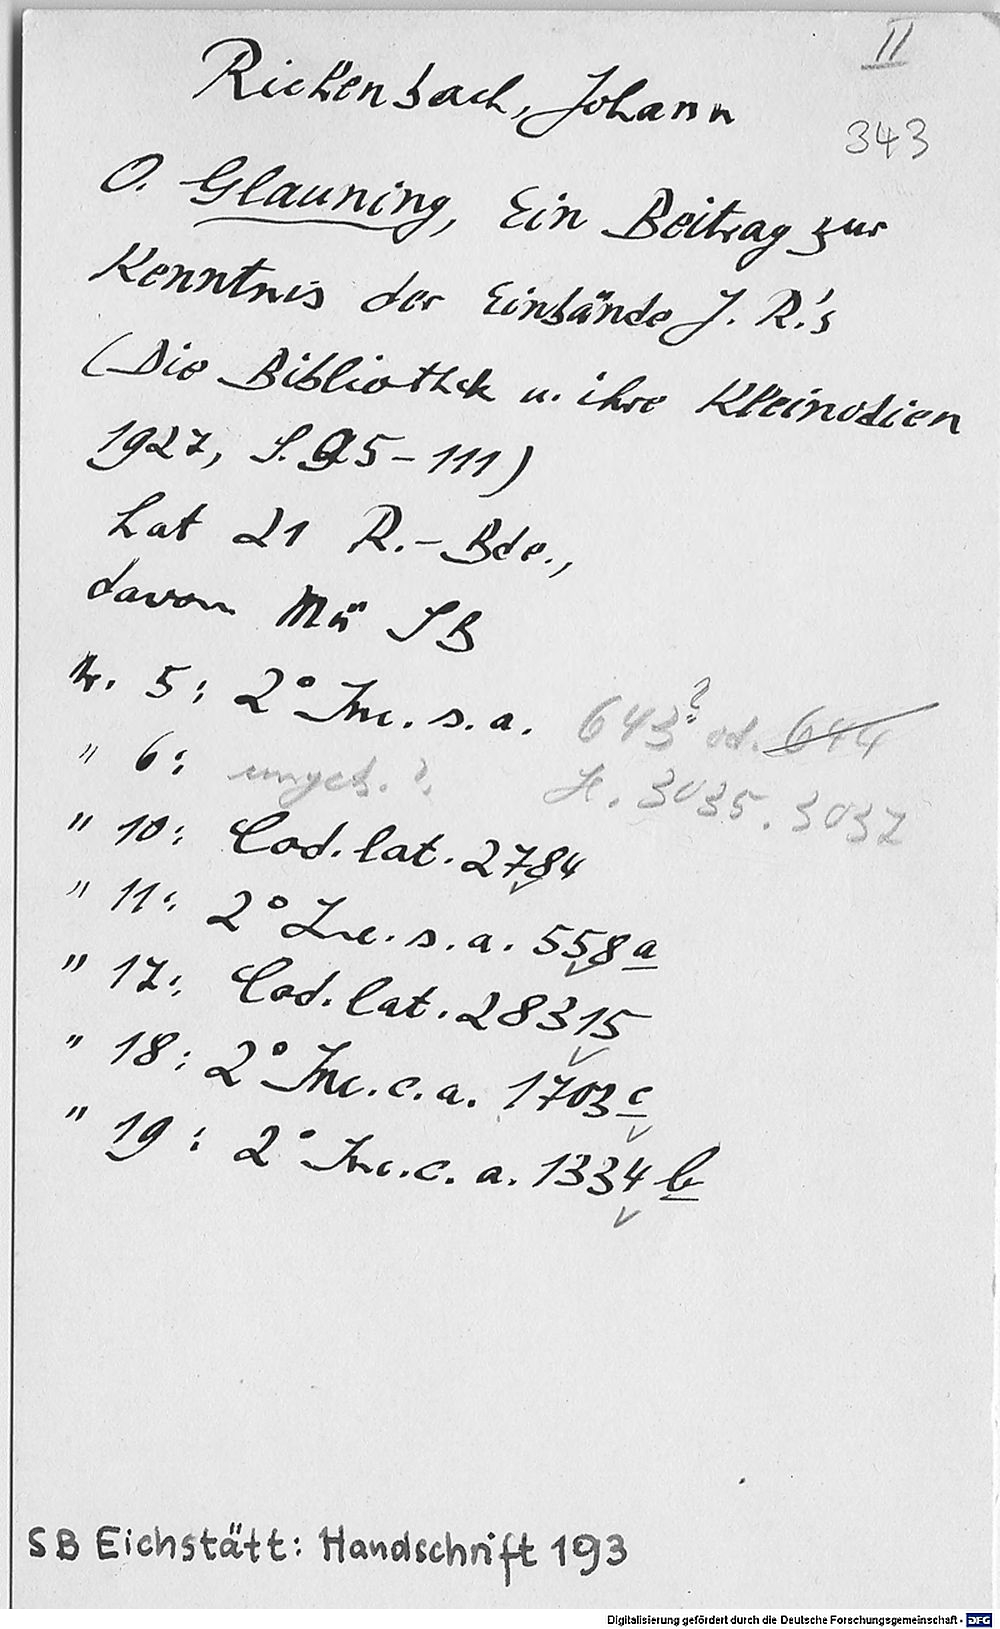 II
Rickenbach, Johann
343
O. Glauning, Ein Beitrag zur
Kenntnis der Einbände J. R.'s
(Die Bibliothek u. ihre Kleinodien
1927, S. 95-111)
hat 21 R.-Bde.,
davon Mü SB
Nr. 5: 2° Inc. s. a. 643? od. 644
" 6: ungeb.? H. 3035. 3037
" 10: Cod. lat. 2784
" 11: 2° Inc. s. a. 558a
" 17: Cod. lat. 28315
" 18: 2° Inc. c. a. 1703c
" 19: 2° Inc. c. a. 1334b
SB Eichstätt: Handschrift 193
Digitalisierung gefördert durch die Deutsche Forschungsgemeinschaft - DFG